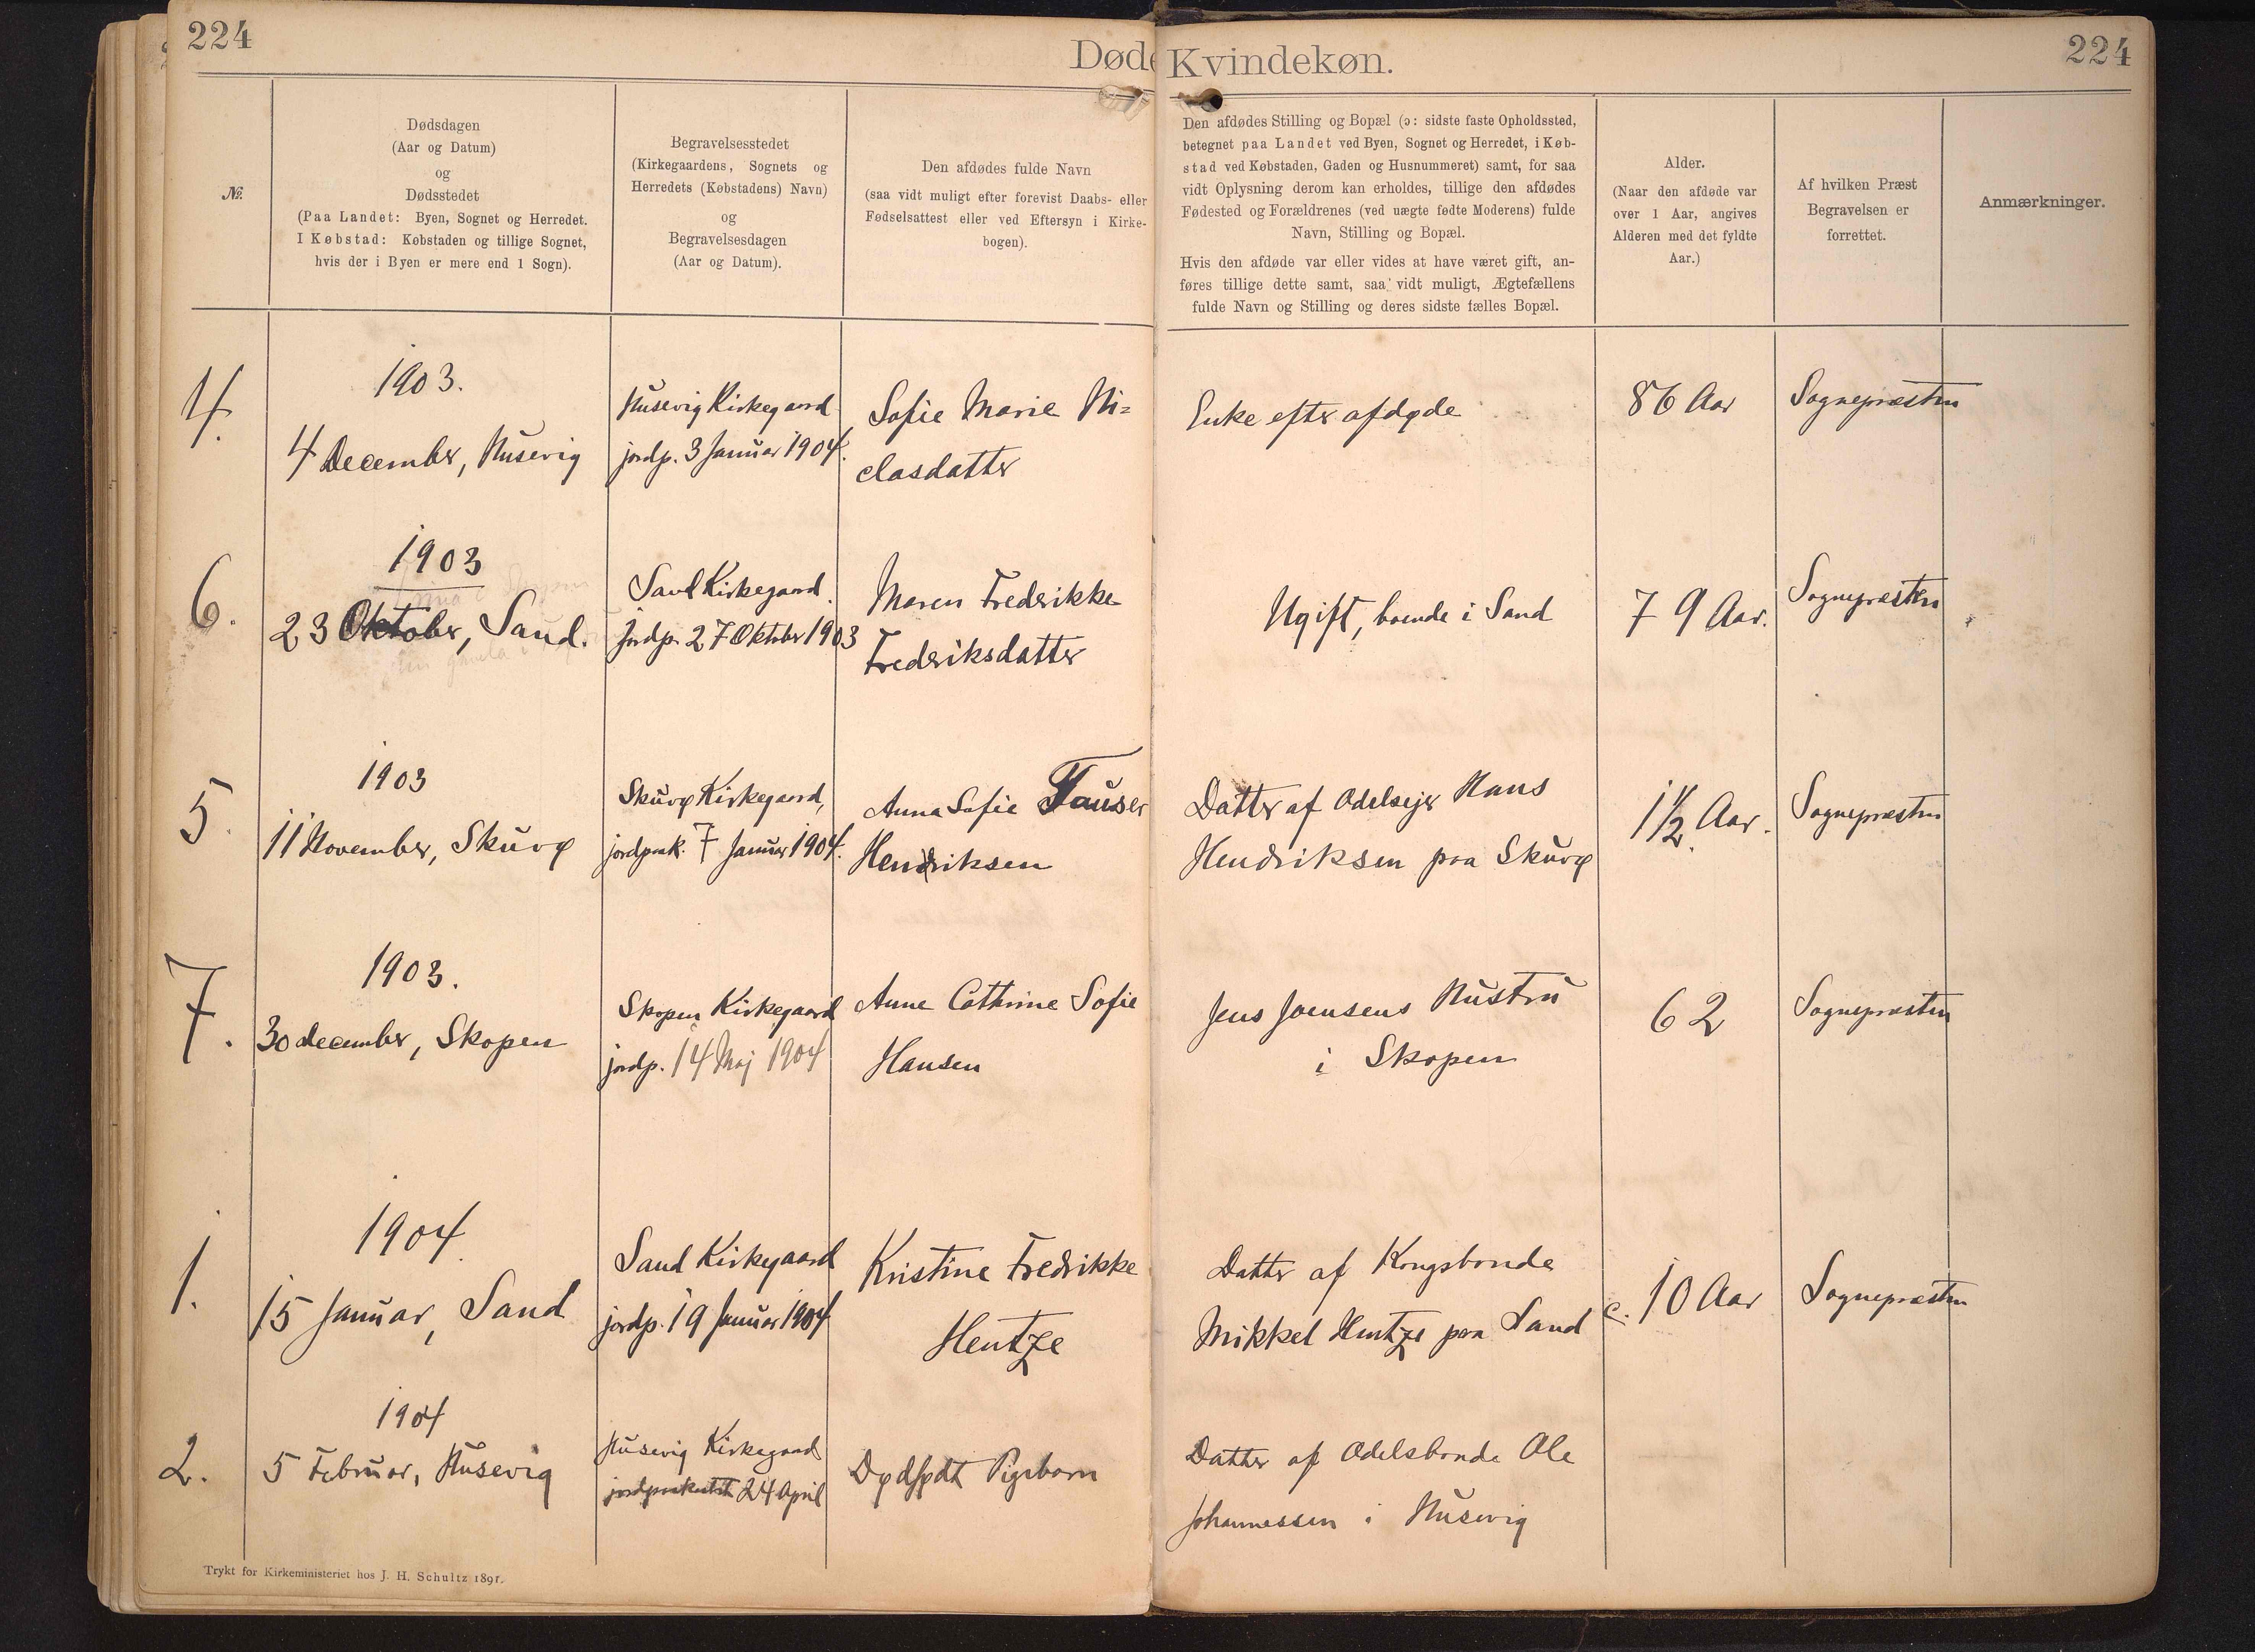 224
Døde Kvindekøn.
224
№.
Dødsdagen
(Aar og Datum)
og
Dødsstedet
(Paa Landet: Byen, Sognet og Herredet.
I Købstad: Købstaden og tillige Sognet,
hvis der i Byen er mere end 1 Sogn).
Begravelsesstedet
(Kirkegaardens, Sognets og
Herredets (Købstadens) Navn)
og
Begravelsesdagen
(Aar og Datum).
Den afdødes fulde Navn
(saa vidt muligt efter forevist Daabs- eller
Fødselsattest eller ved Eftersyn i Kirke-
bogen).
Den afdødes Stilling og Bopæl (ɔ: sidste faste Opholdssted,
betegnet paa Landet ved Byen, Sognet og Herredet, i Køb-
stad ved Købstaden, Gaden og Husnummeret) samt, for saa
vidt Oplysning derom kan erholdes, tillige den afdødes
Fødested og Forældrenes (ved uægte fødte Moderens) fulde
Navn, Stilling og Bopæl.
Hvis den afdøde var eller vides at have været gift, an-
føres tillige dette samt, saa vidt muligt, Ægtefællens
fulde Navn og Stilling og deres sidste fælles Bopæl.
Alder.
(Naar den afdøde var
over 1 Aar, angives
Alderen med det fyldte
Aar.)
Af hvilken Præst
Begravelsen er
forrettet.
Anmærkninger.
4.
1903.
4 December, Husevig
Husevig Kirkegaard
jordp. 3 Januar 1904.
Sofie Marie Ni=
clasdatter
Enke efter afdøde
86 Aar
Sognepræsten
6.
1903
23 Oktober, Sand.
Sand Kirkegaard.
jordp. 27 Oktober 1903
Maren Frederikke
Frederiksdatter
Ugift, boende i Sand
79 Aar.
Sognepræsten
5.
1903
11 November, Skuvø
Skuvø Kirkegaard,
jordpaak. 7 Januar 1904.
Anna Sofie Fauser
Hendriksen
Datter af Odelsejer Hans
Hendriksen paa Skuvø
1 1/2 Aar.
Sognepræsten
7.
1903.
30 december, Skopen
Skopen Kirkegaard
jordp. 14 Maj 1904
Anne Cathrine Sofie
Hansen
Jens Joensens Hustru
i Skopen
62
Sognepræsten
1.
1904.
15 Januar, Sand
Sand Kirkegaard
jordp. 19 Januar 1904
Kristine Fredrikke
Hentze
Datter af Kongsbonde
Mikkel Hentze paa Sand
c. 10 Aar
Sognepræsten
2.
1904
5 Februar, Husevig
Husevig Kirkegaard
jordpaakastet 24 April
Dødfødt Pigebarn
Datter af Odelsbonde Ole
Johannessen i Husevig
Trykt for Kirkeministeriet hos J. H. Schultz 1891.